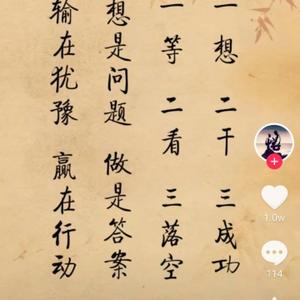 一想二干三成功
一等二看三落空
想是问题 做是答案
输在犹豫 赢在行动
1.0w
114